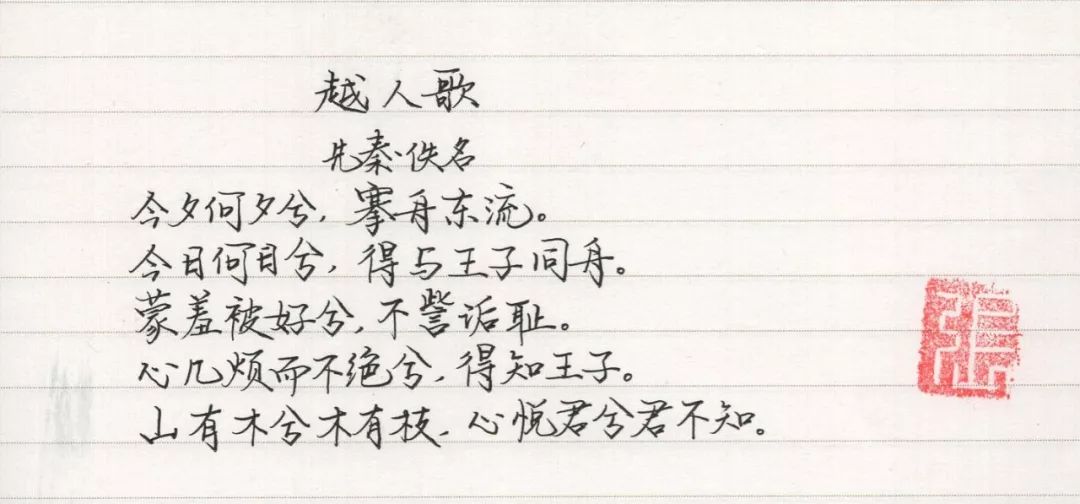 越人歌
先秦·佚名
今夕何夕兮，搴舟东流。
今日何日兮，得与王子同舟。
蒙羞被好兮，不訾诟耻。
心几烦而不绝兮，得知王子。
山有木兮木有枝，心悦君兮君不知。
張